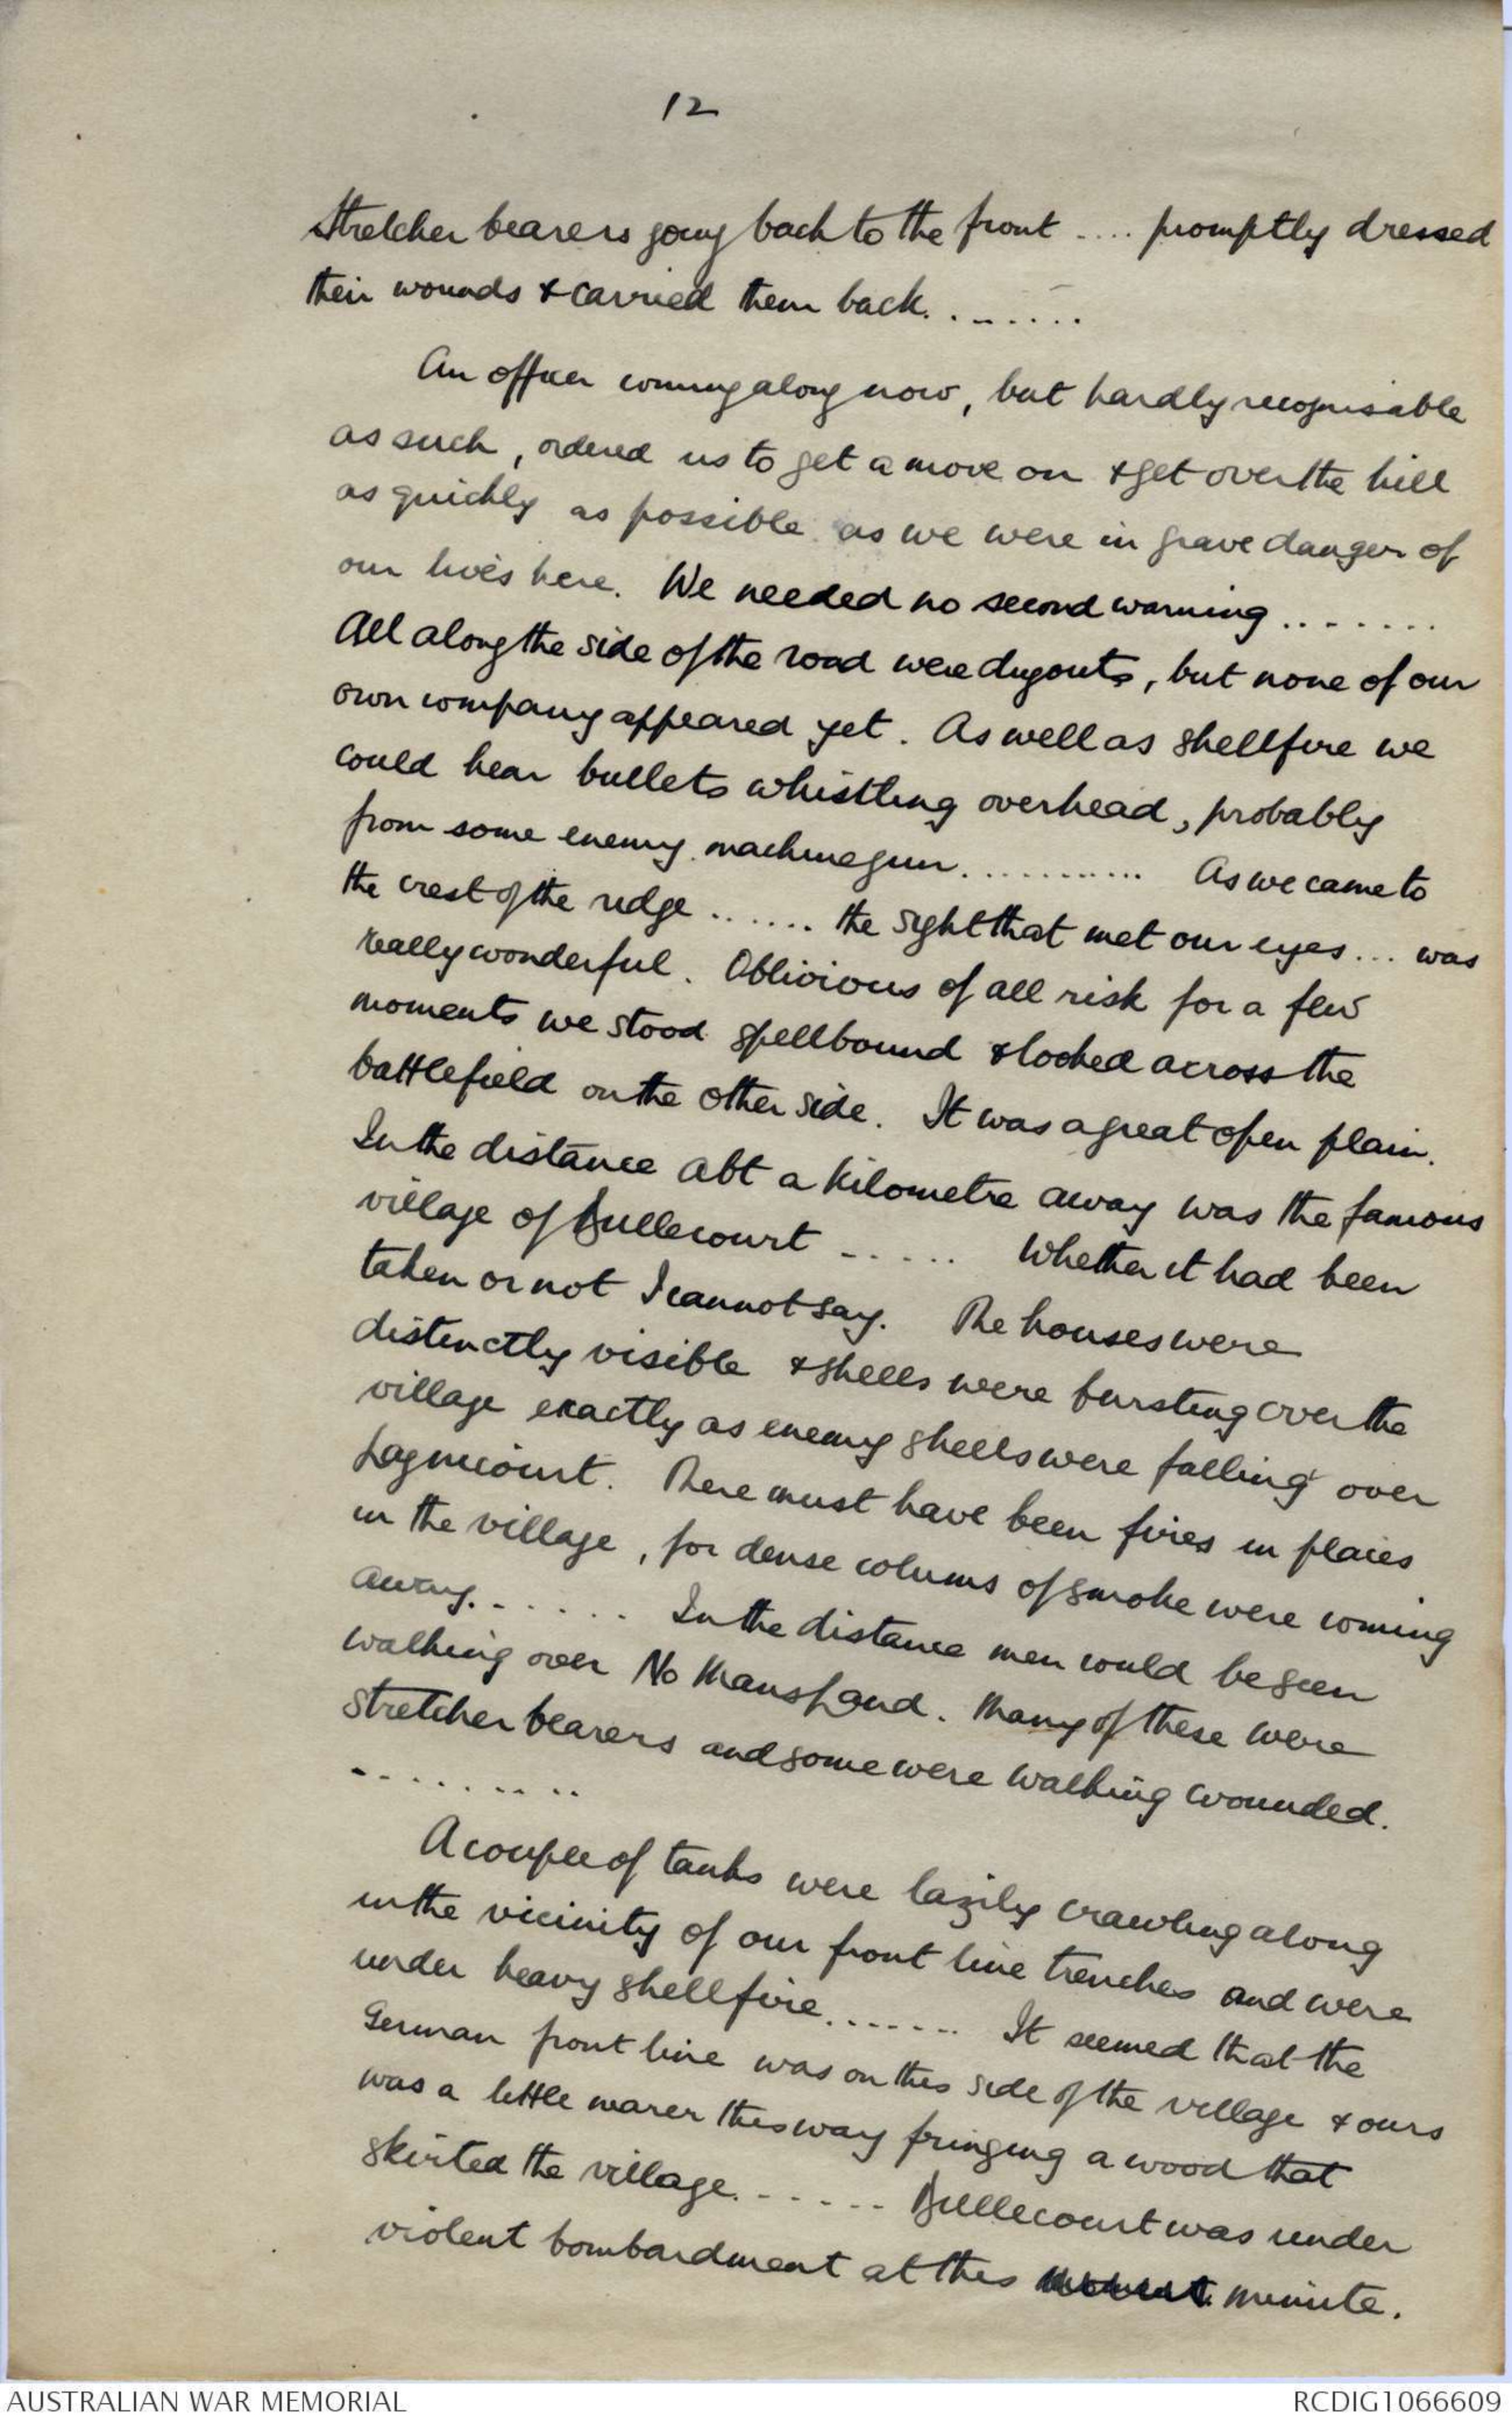 12
Stretcher bearers going back to the front .... promptly dressed
their wounds & carried them back. .......
An officer coming along now, but hardly recognisable
as such, ordered us to get a move on & get over the hill
as quickly as possible as we were in grave danger of
our lives here. We needed no second warning .......
All along the side of the road were dugouts, but none of our
own company appeared yet. As well as shellfire we
could hear bullets whistling overhead, probably
from some enemy machinegun............ As we came to
the crest of the ridge ....... the sight that met our eyes ... was
really wonderful. Oblivious of all risk for a few
moments we stood spellbound & looked across the
battlefield on the other side. It was a great open plain.
In the distance abt a kilometre away was the famous
village of Bullecourt ...... Whether it had been
taken or not I cannot say. The houses were
distinctly visible & shells were bursting over the
village exactly as enemy shells were falling over
Lagnicourt. There must have been fires in places
in the village, for dense colums of smoke were coming
away....... In the distance men could be seen
walking over No Mans Land. Many of these were
stretcher bearers and some were walking wounded.
..........
A couple of tanks were lazily crawling along
in the vicinity of our front line trenches and were
under heavy shellfire........ It seemed that the
German front line was on this side of the village & ours
was a little nearer this way fringing a wood that
skirted the village....... Bullecourt was under
violent bombardment at this minute.
AUSTRALIAN WAR MEMORIAL
RCDIG1066609